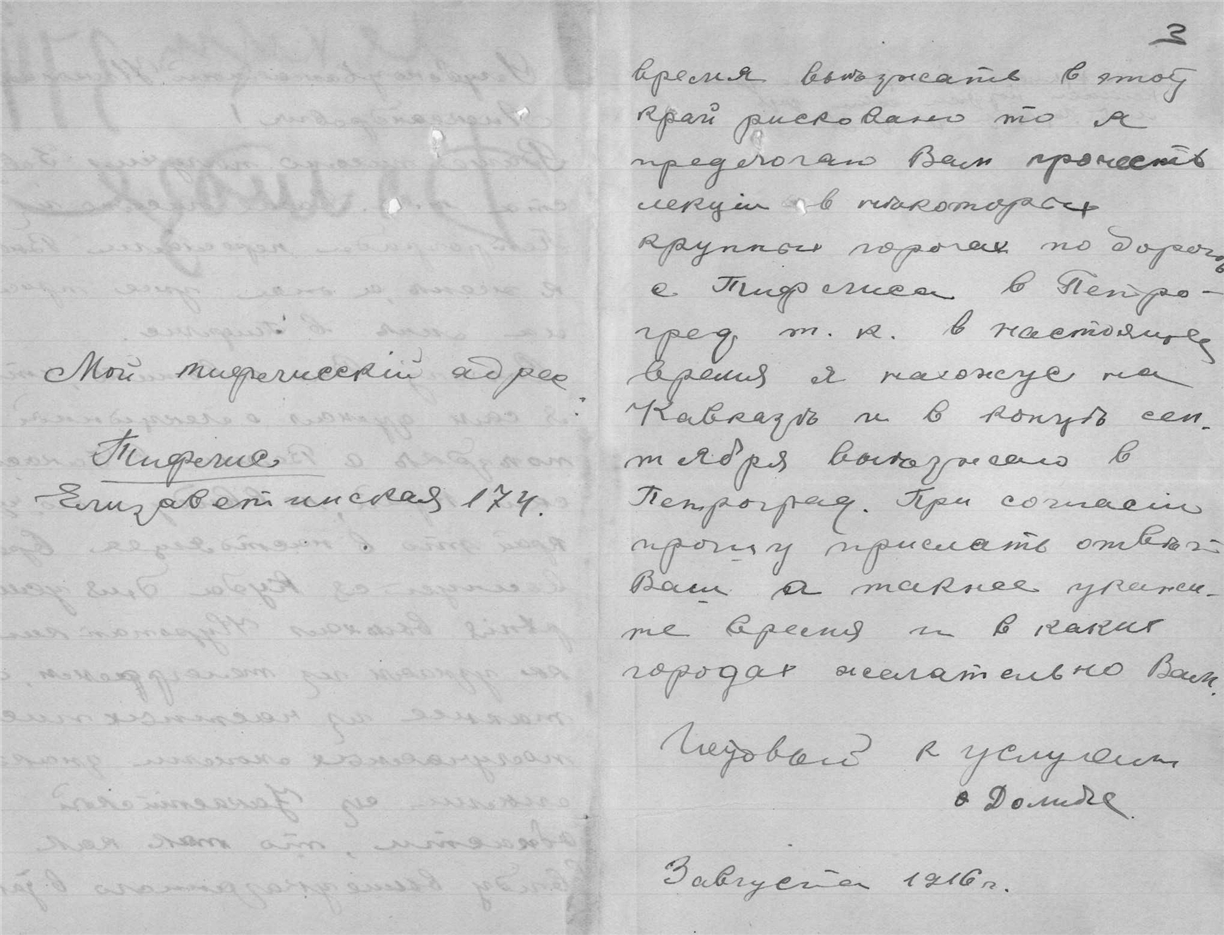 Мой тифлисскій адрес:
Тифлис
Елизаветинская 174.
3
время выѣзжать в этот
край рисковано то я
предлогаю Вам прочесть
лекціи в нѣкоторых
крупных городах по дорогѣ
с Тифлиса в Петро-
град т. к. в настоящее
время я нахожус на
Кавказѣ и в концѣ сен-
тября выѣзжаю в
Петроград. При согласіи
прошу прислать отвѣт
Ваш а также укажи-
те время и в каких
городах желательно Вам.
Готовый к услугам
Долидзе
3 августа 1916 г.